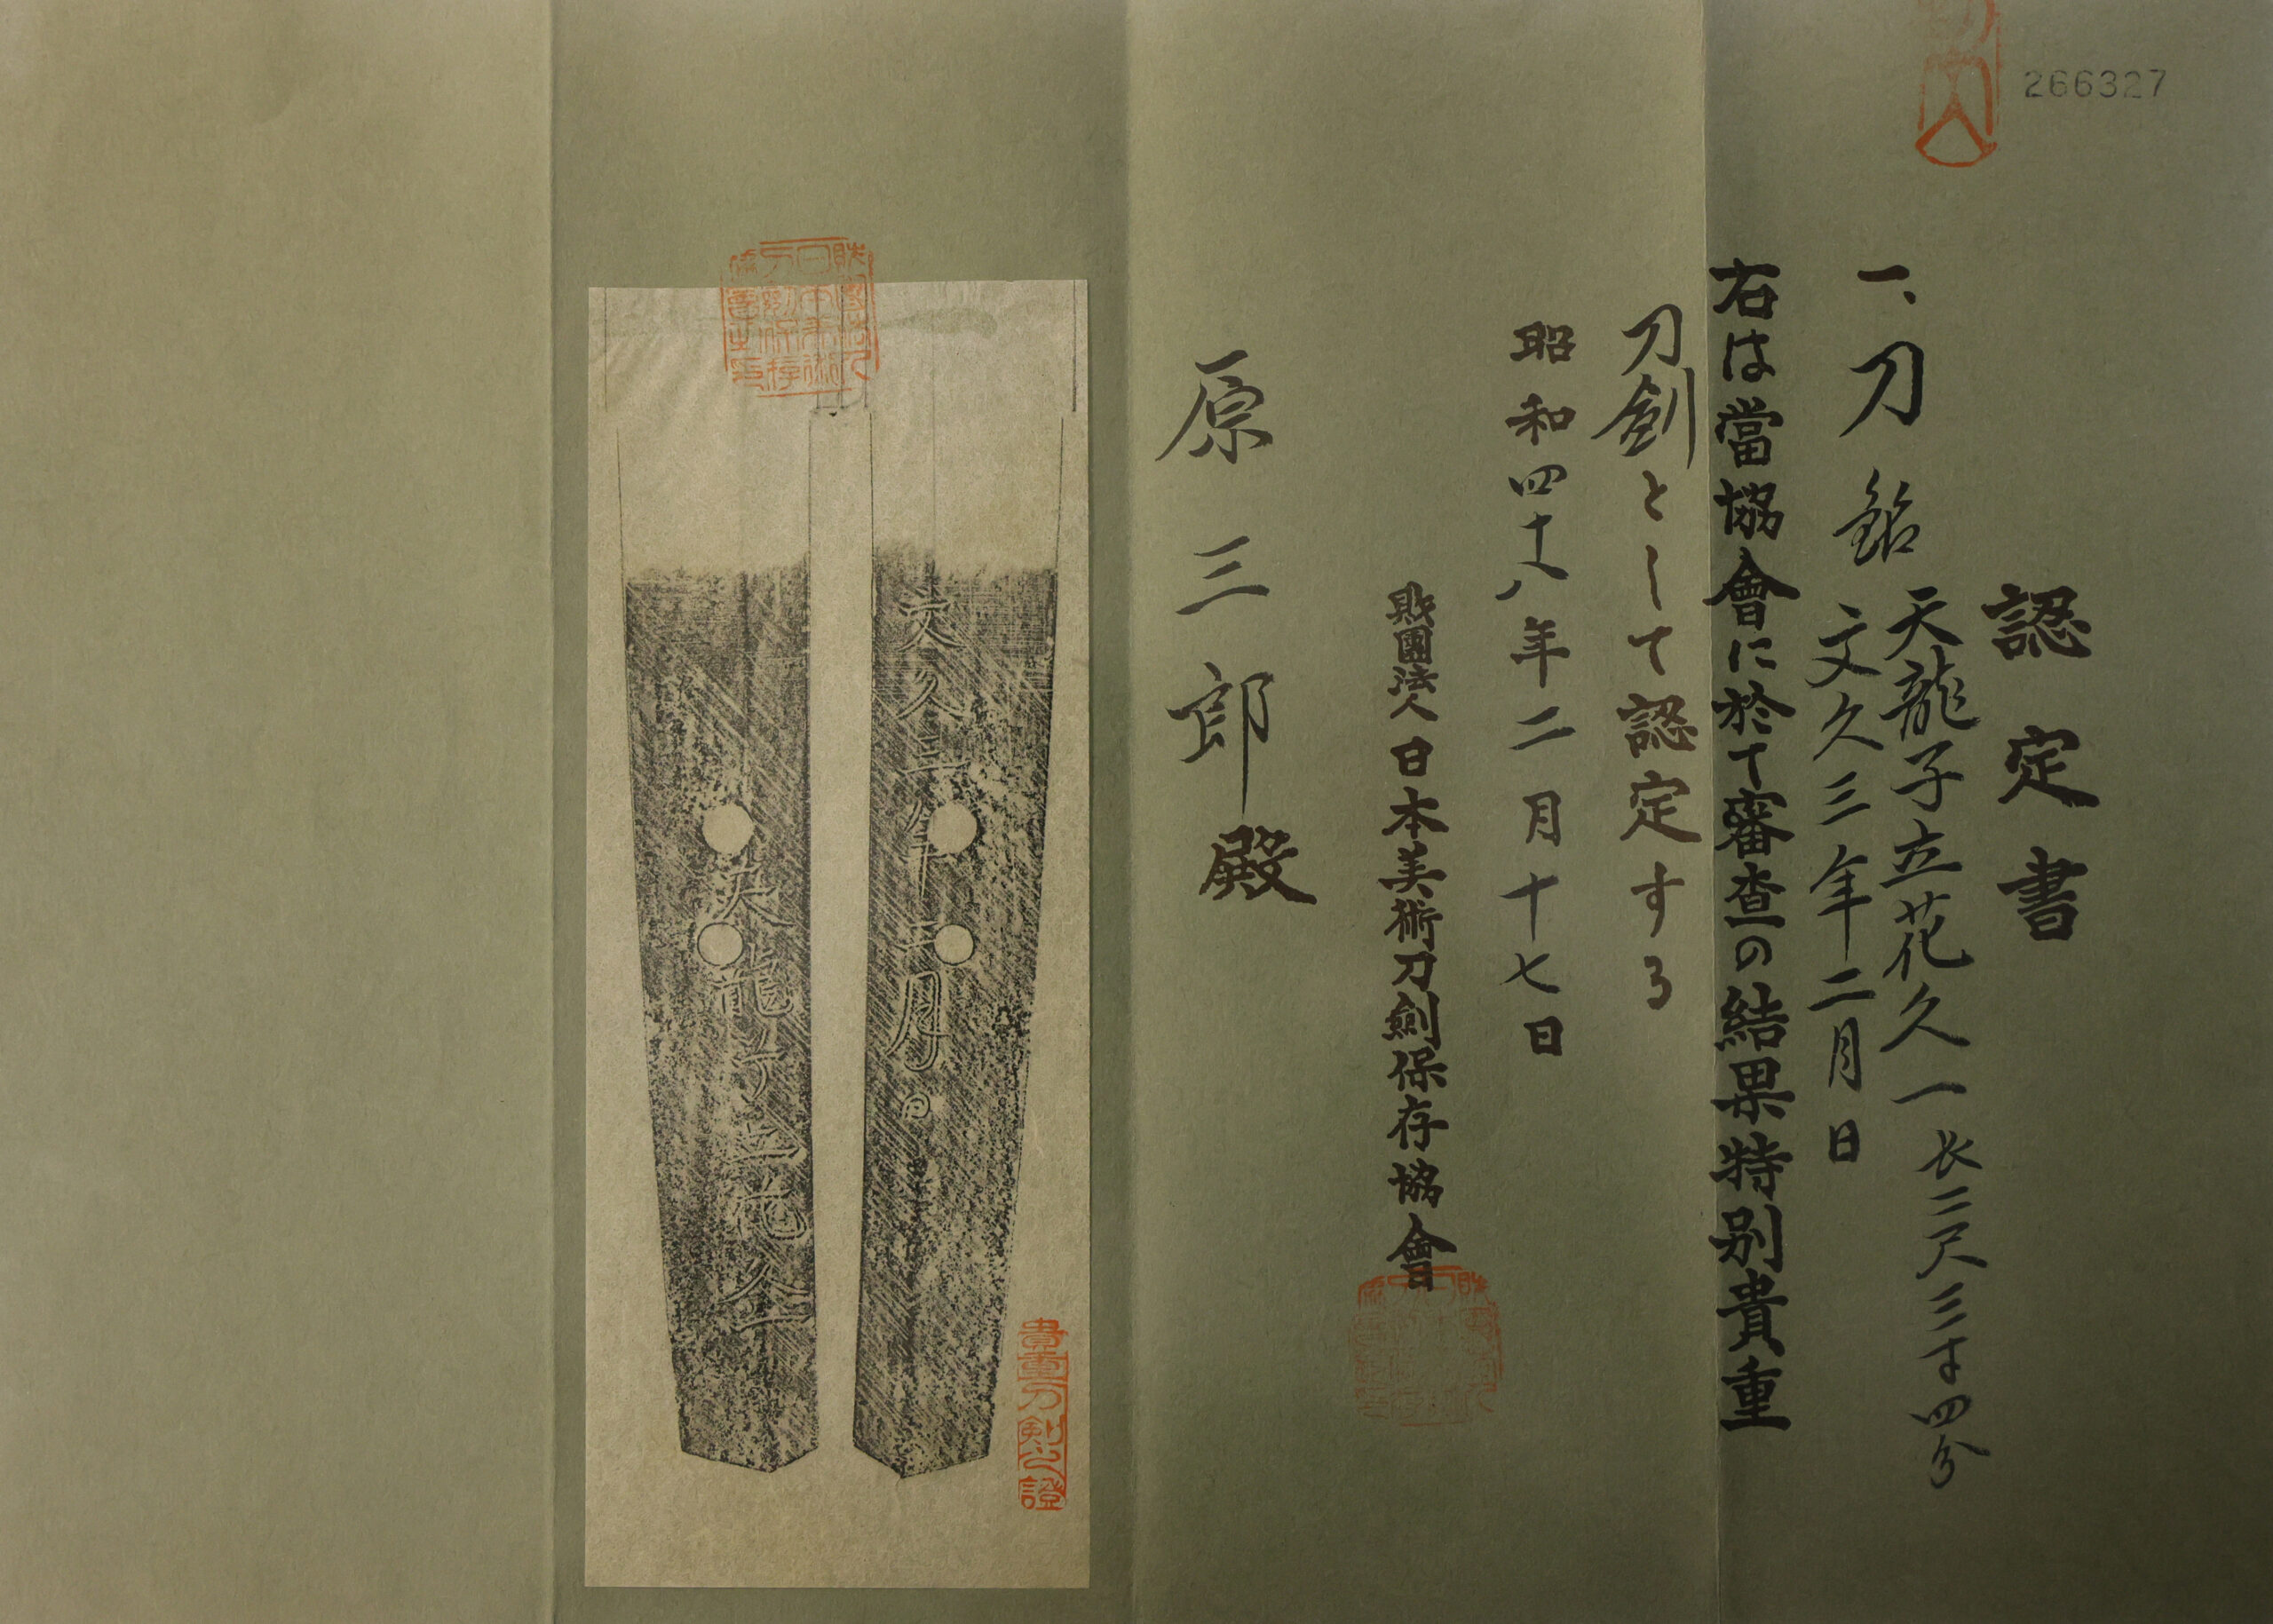 266327
認定書
一、刀 銘 天龍子立花久一 長二尺三寸四分
文久三年二月日
右は當協會に於て審査の結果特別貴重
刀劍として認定する
昭和四十八年二月十七日
財團法人日本美術刀劍保存協會
原三郎殿
文久三年二月日
天龍子立花久一
貴重刀剣之證